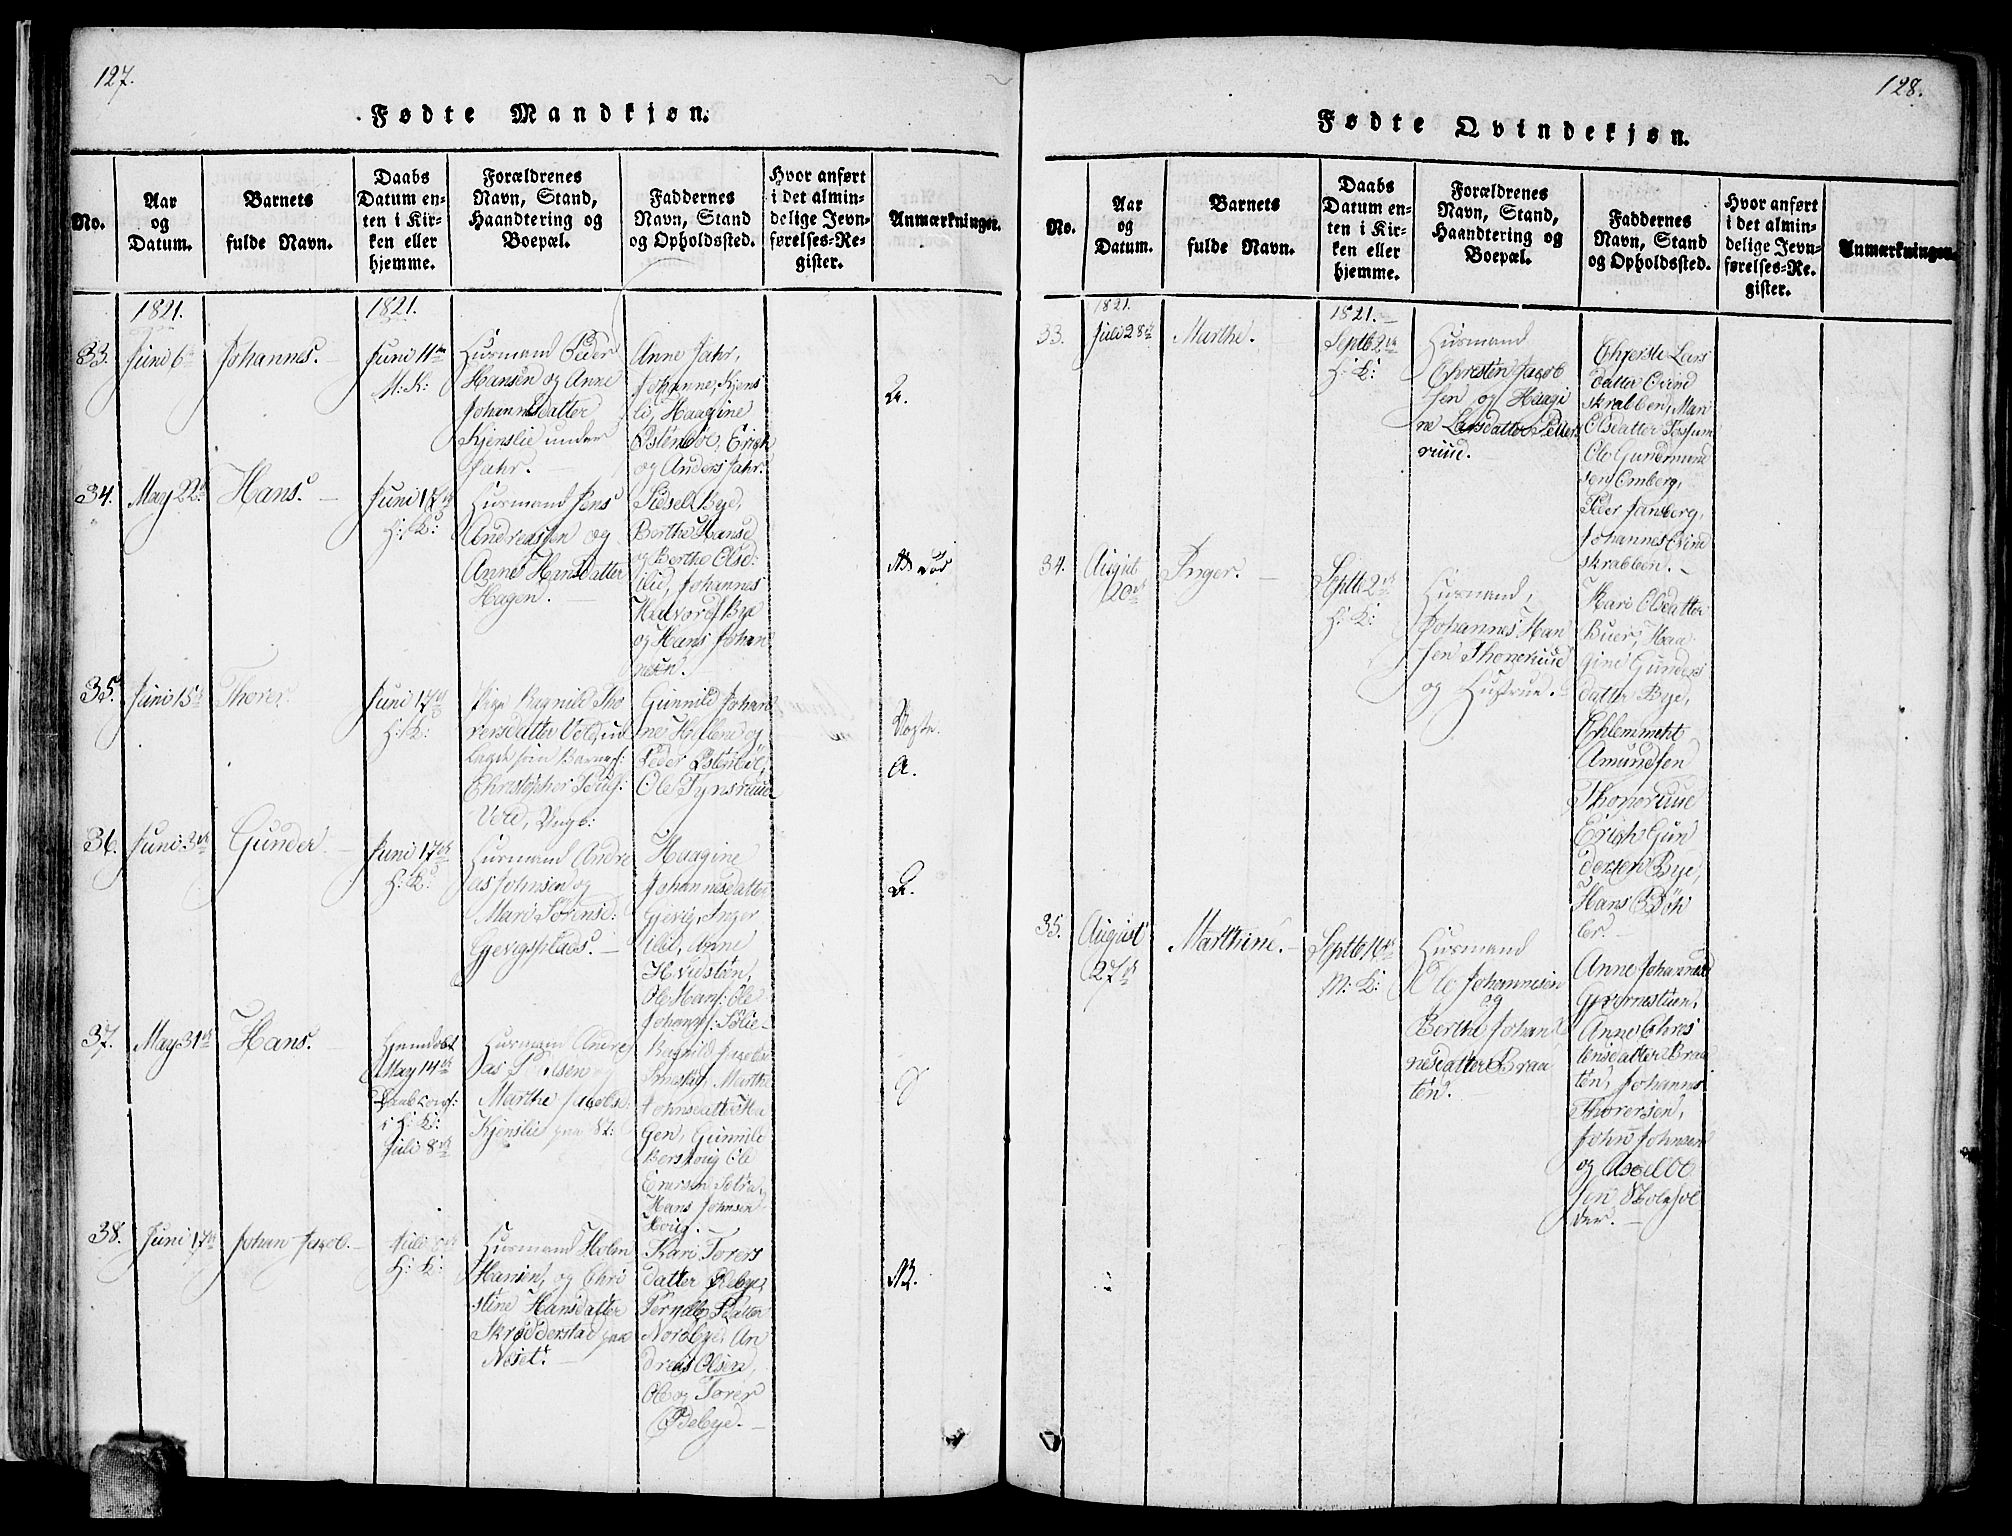 127.
Fødte Mandkjøn.
No.
Aar
og
Datum.
Barnets
fulde Navn.
Daabs
Datum en-
ten i Kir-
ken eller
hjemme.
Forældrenes
Navn, Stand,
Haandtering og
Boepæl.
Faddernes
Navn, Stand
og Opholdssted.
Hvor anført
i det almin-
delige Jevn-
førelses-Re-
gister.
Anmærkninger.
1821.
1821.
33.
Juni 6
Johannes.
Juni 11
M: K:
Husmand Peder
Hansen og Anne
Johannesdatter
Kjenslie under
Jahr.
Anne Jahr,
Johanne Kjens
li, Haagine
Østenbøl, Erich
og Anders Jahr.
34.
May 22
Hans.
Juni 17
H: K:
Husmand Jens
Andreassen og
Anne Hansdatter
Hagen.
Sidsel Bye,
Berthe Hansd
og Berthe Olsd:
lilie, Johannes
Halvors Bye
og Hans Johan
nesen.
35.
Juni 15
Thorer
Juni 17
H: K:
Pige Ragnild Tho
rersdatter Vold, ud
lagt som Barnef:
Christopher
Vold, Ungk:
Gunnild Johan
ne Hellend og
Peder Østenbøl,
Ole Tynsruue
A.
36.
Juni 3
Gunder
Juni 17
H: K:
Husmand Andre
as Johnsen og
Mari Sørensd:
Gjevigsplads.
Haagine
Johannesdatter
Gjevig, Inger
ilie, Anne
Hvidsten,
Ole Hans: Ole
Johans: Sølie
37.
May 31
Hans.
Hjemdøbt
May 14
Daab conf:
i H: K:
Juli 8
Husmand Andre
as Olsen og
Marthe Jacobsd:
Kjenslie paa St:
Ragnild Jacobs
Marthe
Johnsdatter Ha
gen, Gunnild
Berskoug Ole
Hans Johnsen
Houg.
38.
Juni 17
Johan Jacob.
Juli 8
H: K:
Husmand Holm
Hansen, og Chri
stine Hansdatter
Skrøderstad paa
Neset.
Kari Torers
datter Ødebye,
Pernille datter
Nordbye, An
dreas Olsen,
Ole og Torer
Ødebye.
128.
Fødte Qvindekjøn.
No.
Aar
og
Datum.
Barnets
fulde Navn.
Daabs
Datum en-
ten i Kir-
ken eller
hjemme.
Forældrenes
Navn, Stand,
Haandtering og
Boepæl.
Faddernes
Navn, Stand
og Opholdssted.
Hvor anført
i det almin-
delige Jevn-
førelses-Re-
gister.
Anmærkninger.
1821.
1821.
33.
Juli 28
Marthe.
Septb 2
H: K:
Husmand
Christen Jacob
sen og Haagi
ne Larsdatter Peller
ruud.
Christe Lars
datter Qvind
skrabben, Mari
Olsdatter Fossum
Ole Gundmund
sen Omberg,
Peder Janberg,
Johannes Qvind
skrabben.
34.
August
20
Inger.
Septb 2
H: K:
Husmand,
Johannes Han
sen Thoneruud
og Hustrue.
Kari Olsdatter
Buer, Haa
gine Gunders
datter Bye,
Chlemmeht
Amundsen
Thoneruue
Erich Gun
dersen Bye,
Hans Bøh
ler
35.
August
27
Marthine.
Septb 16
M: K:
Husmand
Ole Johannesen
og
Berthe Johan
nesdatter Braa
ten.
Anne Johannesd
Gjernestuen,
Anne Chres
tensdatter Braa
ten, Johannes
Thorersen,
John Johnsen
og Axel Ol
sen Skolehol
der.